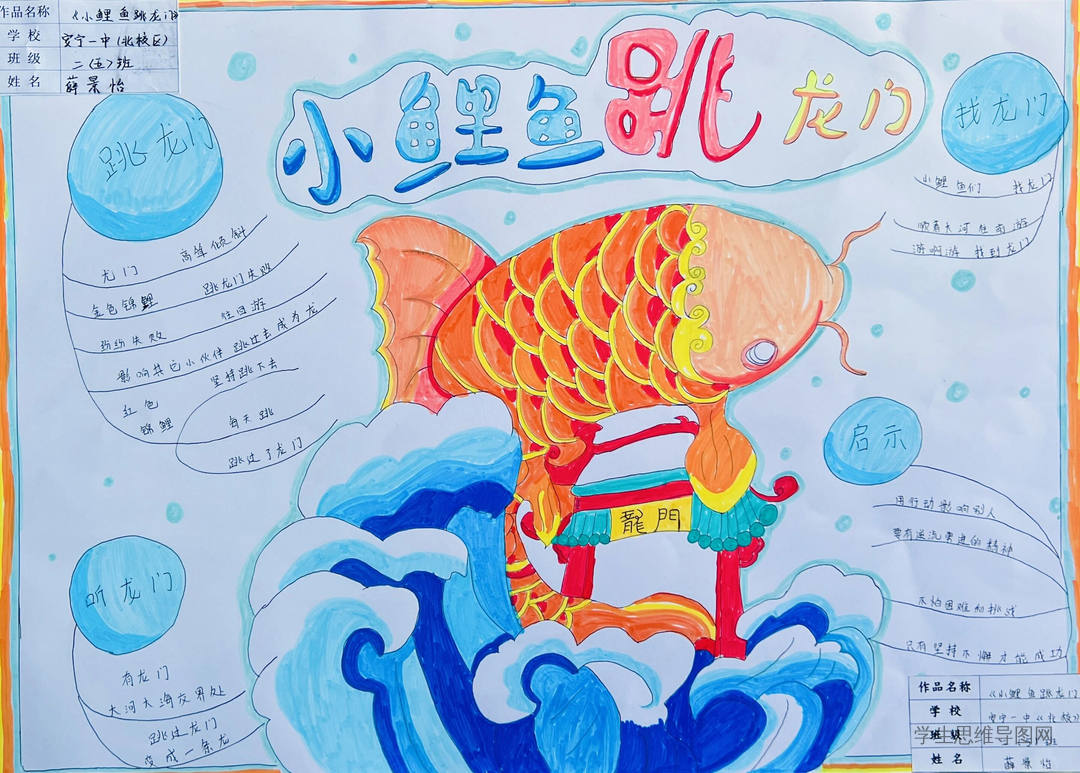 作品名称 《小鲤鱼跳龙门》
学校 安宁一中(北校区)
班级 二(五)班
姓名 薛景怡
小鲤鱼跳龙门
跳龙门
龙门 高耸倾斜
金色锦鲤 跳龙门失败
纷纷失败 往回游
影响其它小伙伴 跳过去成为龙
红色锦鲤 坚持跳下去
每天跳
跳过了龙门
找龙门
小鲤鱼们 找龙门
顺着大河往南游
游啊游 找到龙门
龍門
启示
用行动影响别人
要有逆流勇进的精神
不怕困难和挑战
只有坚持不懈才能成功
听龙门
有龙门
大河大海交界处
跳过龙门
变成一条龙
作品名称 《小鲤鱼跳龙门
学校 安宁一中(北校
班级
姓名 薛景怡
学生思维导图网